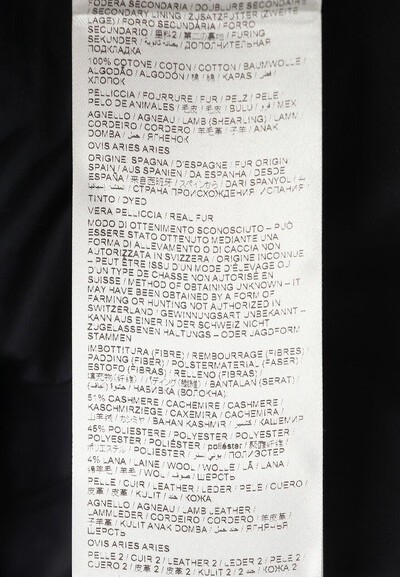 FODERA SECONDARIA / DOUBLURE SECONDAIRE
SECONDARY LINING / ZUSATZFUTTER (ZWEITE
LAGE) / FORRO SECUNDARIA / FORRO
SECUNDARIO / 里料2 / 第二の裏地 / FURING
SEKUNDER / بطانة ثانوية / ДОПОЛНИТЕЛЬНАЯ
ПОДКЛАДКА
100% COTONE / COTON / COTTON / BAUMWOLLE /
ALGODÃO / ALGODÓN / 棉 / 綿 / KAPAS / قطن /
ХЛОПОК
PELLICCIA / FOURRURE / FUR / PELZ / PELE /
PELO DE ANIMALES / 毛皮 / 毛皮 / BULU / فرو / МЕХ
AGNELLO / AGNEAU / LAMB (SHEARLING) / LAMM /
CORDEIRO / CORDERO / 羊毛革 / 子羊 / ANAK
DOMBA / حمل / ЯГНЕНОК
OVIS ARIES ARIES
ORIGINE SPAGNA / D'ESPAGNE / FUR ORIGIN
SPAIN / AUS SPANIEN / DA ESPANHA / DESDE
ESPAÑA / 来自西班牙 / スペインから / DARI SPANYOL /
СТРАНА ПРОИСХОЖДЕНИЯ: ИСПАНИЯ
TINTO / DYED
VERA PELLICCIA / REAL FUR
MODO DI OTTENIMENTO SCONOSCIUTO – PUÒ
ESSERE STATO OTTENUTO MEDIANTE UNA
FORMA DI ALLEVAMENTO O DI CACCIA NON
AUTORIZZATA IN SVIZZERA / ORIGINE INCONNUE
– PEUT ÊTRE ISSU D'UN MODE D'ÉLEVAGE OU
D'UN TYPE DE CHASSE NON AUTORISÉ EN
SUISSE / METHOD OF OBTAINING UNKNOWN – IT
MAY HAVE BEEN OBTAINED BY A FORM OF
FARMING OR HUNTING NOT AUTHORIZED IN
SWITZERLAND / GEWINNUNGSART UNBEKANNT –
KANN AUS EINER IN DER SCHWEIZ NICHT
ZUGELASSENEN HALTUNGS – ODER JAGDFORM
STAMMEN
IMBOTTITURA (FIBRE) / REMBOURRAGE (FIBRES) /
PADDING (FIBER) / POLSTERMATERIAL (FASER) /
ESTOFO (FIBRAS) / RELLENO (FIBRAS) /
填充物(纤维) / パディング(繊維) / BANTALAN (SERAT) /
حشوة (ألياف) / НАБИВКА (ВОЛОКНА)
51% CASHMERE / CACHEMIRE / CASHMERE /
KASCHMIRZIEGE / CAXEMIRA / CACHEMIRA /
山羊绒 / カシミヤ / BAHAN KASHMIR / كشمير / КАШЕМИР
45% POLIESTERE / POLYESTER / POLYESTER /
POLYESTER / POLIÉSTER / poliéster / 聚酯纤维 /
ポリエステル / POLIESTER / بوليستر / ПОЛИЭСТЕР
4% LANA / LAINE / WOOL / WOLLE / LÃ / LANA /
绵羊毛 / 羊毛 / WOL / صوف / ШЕРСТЬ
PELLE / CUIR / LEATHER / LEDER / PELE / CUERO /
皮革 / 皮革 / KULIT / جلد / КОЖА
AGNELLO / AGNEAU / LAMB LEATHER /
LAMMLEDER / CORDEIRO / CORDERO / 羊皮革 /
子羊革 / KULIT ANAK DOMBA / حمل / ЯГНЯЧЬЯ
ШЕРСТЬ
OVIS ARIES ARIES
PELLE 2 / CUIR 2 / LEATHER 2 / LEDER 2 / PELE 2 /
CUERO 2 / 皮革 2 / 皮革 2 / KULIT 2 / جلد 2 / КОЖА 2